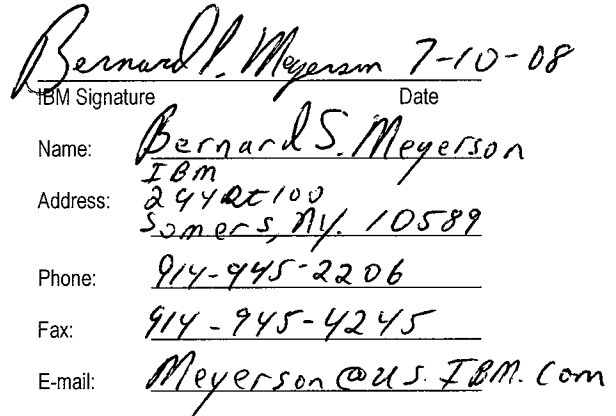 Bernard S. Meyerson 7-10-08
IBM Signature Date
Name: Bernard S. Meyerson
IBM
Address: 294 Rt 100
Somers, NY. 10589
Phone: 914-945-2206
Fax: 914-945-4245
E-mail: Meyerson@us.IBM.com